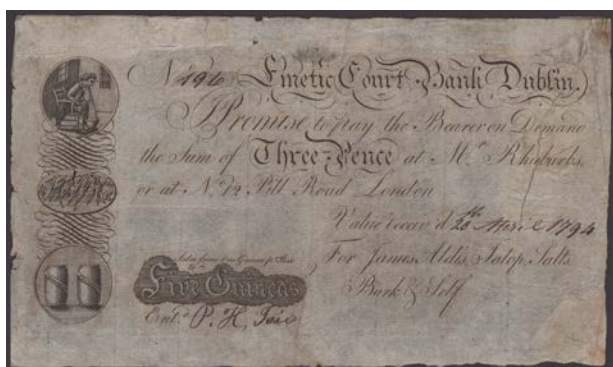 No 196 Emetic Court Bank Dublin.
I Promise to pay the Bearer on Demand
the Sum of Three-Pence at Mr Rhubarbs,
or at No 12 Pill Road London
Value receiv'd 20th April 1794
For James Jalop, Salts
Bark & Self
Five Guineas
Entd P. H,